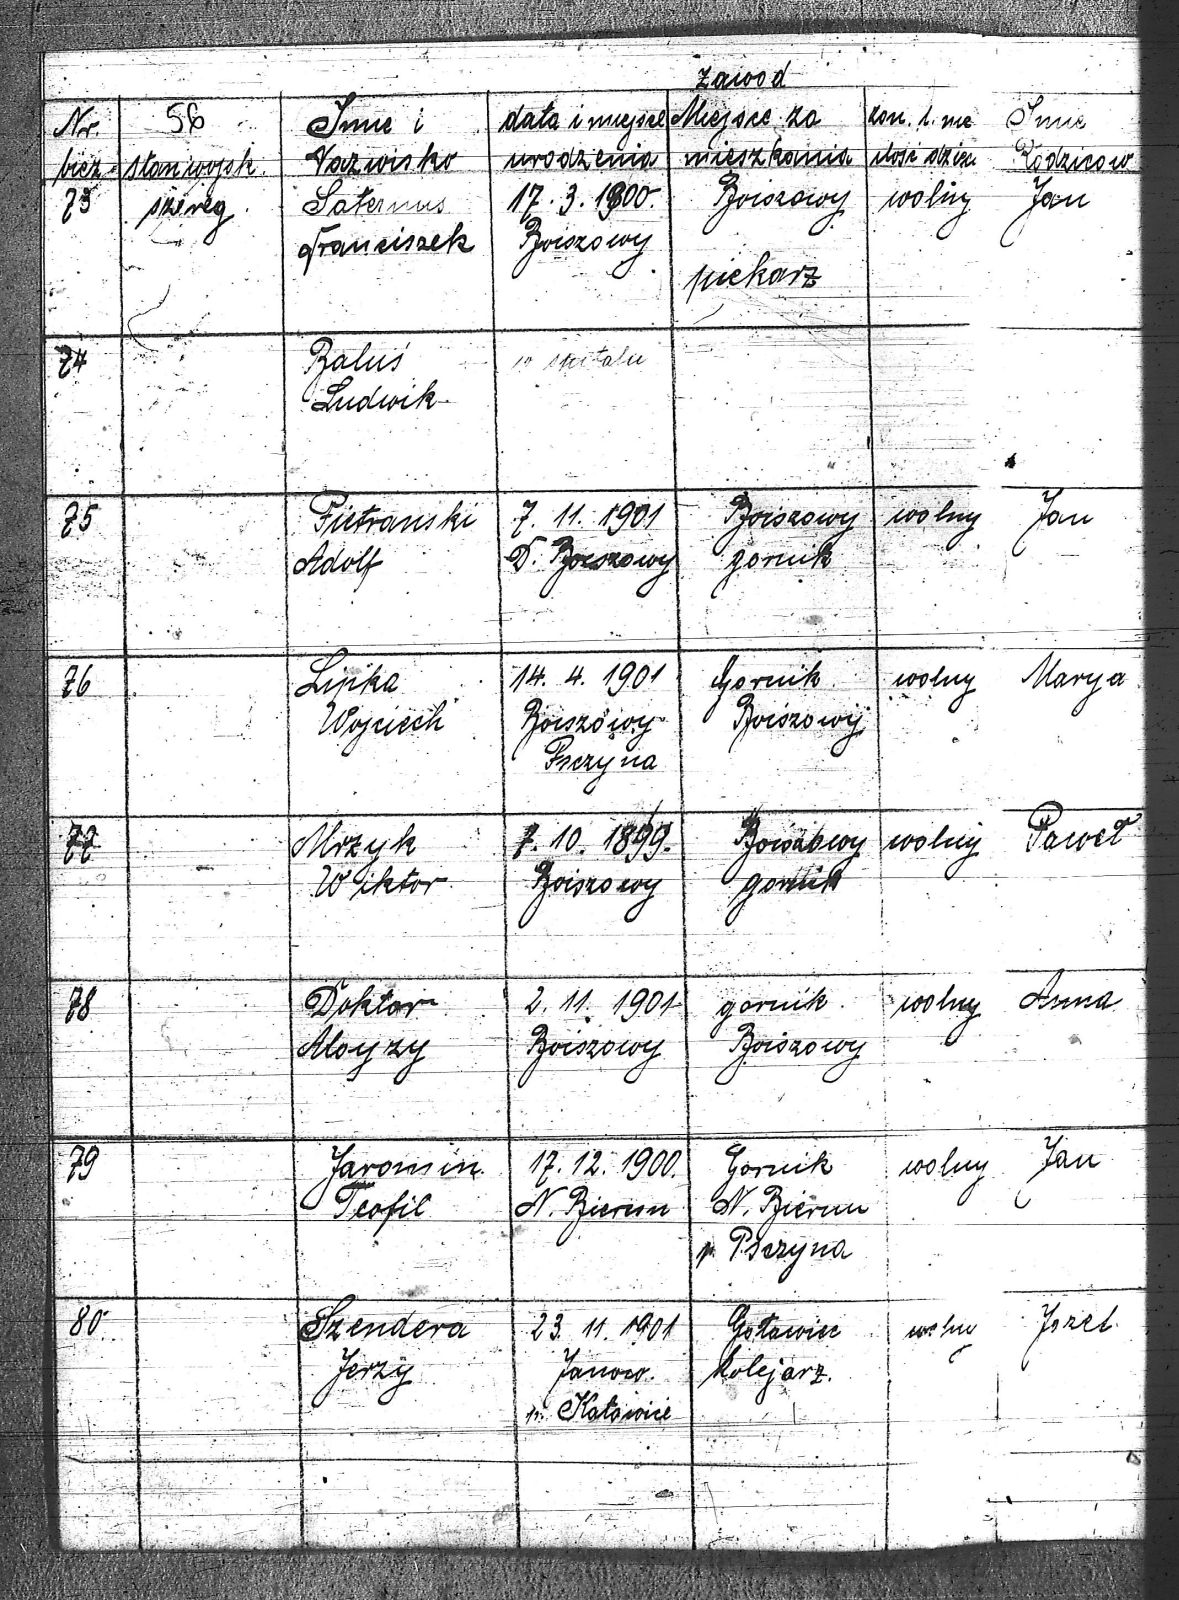 zawod
Nr. 56 Imie i data i miejsce Miejsce za Imie
bież. stan wojsk. Nazwisko urodzenia mieszkania ilość dzieci Rodzicow
73 szereg. Saternus 17. 3. 1900. Boiszowy wolny Jan
Franciszek Boiszowy
piekarz
74 Baluś w szpitalu
Ludwik
75 Pietranski 7. 11. 1901 Boiszowy wolny Jan
Adolf D. Boiszowy gornik
76 Lipka 14. 4. 1901 Gornik wolny Marya
Wojciech Boiszowy Boiszowy
Psczyna
77 Mrzyk 7. 10. 1899. Boiszowy wolny Paweł
Wiktor Boiszowy gornik
78 Doktor 2. 11. 1901 gornik wolny Anna
Aloyzy Boiszowy Boiszowy
79 Jaromin 17. 12. 1900. Gornik wolny Jan
Teofil N. Bierun N. Bierun
p. Psczyna
80 Szendera 23. 11. 1901 Goławiec wolny Jozef
Jerzy Janow. kolejarz.
p. Katowice